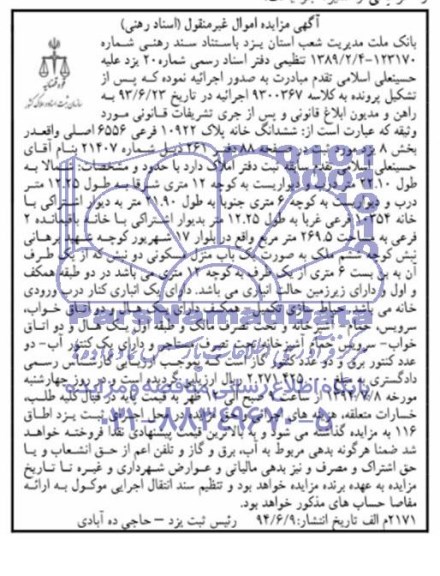 آگهی مزایده اموال غیرمنقول (اسناد رهنی)
بانک ملت مدیریت شعب استان یزد باستناد سند رهنی شماره
۱۲۳۱۷۰-۱۳۸۹/۲/۴ تنظیمی دفتر اسناد رسمی شماره ۲۰ یزد علیه
حسینعلی اسلامی تقدم مبادرت به صدور اجرائیه نموده که پس از
تشکیل پرونده به کلاسه ۹۳۰۰۳۶۷ اجرائیه در تاریخ ۹۳/۶/۲۳ به
راهن و مدیون ابلاغ قانونی و پس از جری تشریفات قانونی مورد
وثیقه که عبارت است از: ششدانگ خانه پلاک ۱۰۹۲۲ فرعی ۶۵۵۶ اصلی واقعدر
بخش ۸ یزد مورد ثبت در صفحه ۸۸ دفتر ۲۶۱ ذیل شماره ۲۱۴۰۷ بنام آقای
حسینعلی اسلامی تقدم سابقه ثبت دفتر املاک دارد با حدود و مشخصات: شمالا به
طول ۲۲.۱۰ متر درب و دیواریست به کوچه ۱۲ متری شرقا به طول ۱۲.۲۵ متر
درب و دیواریست به کوچه ۶ متری جنوبا به طول ۲۱.۹۰ متر به دیوار اشتراکی با
خانه ۱۰۳۵۴ فرعی غربا به طول ۱۲.۲۵ متر بدیوار اشتراکی با خانه باقیمانده ۲
فرعی به مساحت ۲۶۹.۵ متر مربع واقع در بلوار ۱۷ شهریور کوچه شهید برهانی
نبش کوچه ششم ملک به صورت یک باب منزل مسکونی دو نبش که از یک طرف
آن به بن بست ۶ متری از یک طرف به کوچه ۱۲ متری می باشد در دو طبقه همکف
و اول و دارای زیرزمین حالت انباری می باشد. دارای یک انباری کنار درب ورودی
خانه می باشد. حیاط سازی تکمیل - همکف دارای یک هال، دو اتاق خواب،
سرویس، حمام، آشپزخانه و تحت تصرف مالک و طبقه اول یک هال و دو اتاق
خواب- سرویس- حمام، آشپزخانه تحت تصرف مستاجر و دارای یک کنتور آب- دو
عدد کنتور برق و دو عدد کنتور گاز است که بموجب ارزیابی کارشناس رسمی
دادگستری به مبلغ ریال ارزیابی گردیده است و در روز چهارشنبه
مورخه ۱۳۹۴/۷/۸ از ساعت ۹ صبح الی ۱۲ ظهر به قیمت پایه در قبال کلیه طلب،
خسارات متعلقه، هزینه های اجرائی و حق مزایده در محل اجرای ثبت یزد اطاق
۱۱۶ به مزایده گذاشته می شود و به بالاترین قیمت پیشنهادی نقدا فروخته خواهد
شد ضمنا هرگونه بدهی مربوط به آب، برق و گاز و تلفن اعم از حق انشعاب و یا
حق اشتراک و مصرف و نیز بدهی مالیاتی و عوارض شهرداری و غیره تا تاریخ
مزایده به عهده برنده مزایده خواهد بود و تنظیم سند انتقال اجرایی موکول به ارائه
مفاصا حساب های مذکور خواهد بود.
۲۱۷۱م الف تاریخ انتشار: ۹۴/۶/۹ رئیس ثبت یزد – حاجی ده آبادی
ParsNamadData
پایگاه اطلاع رسانی مناقصه و مزایده
۰۲۱-۸۸۳۴۹۶۷۰-۵